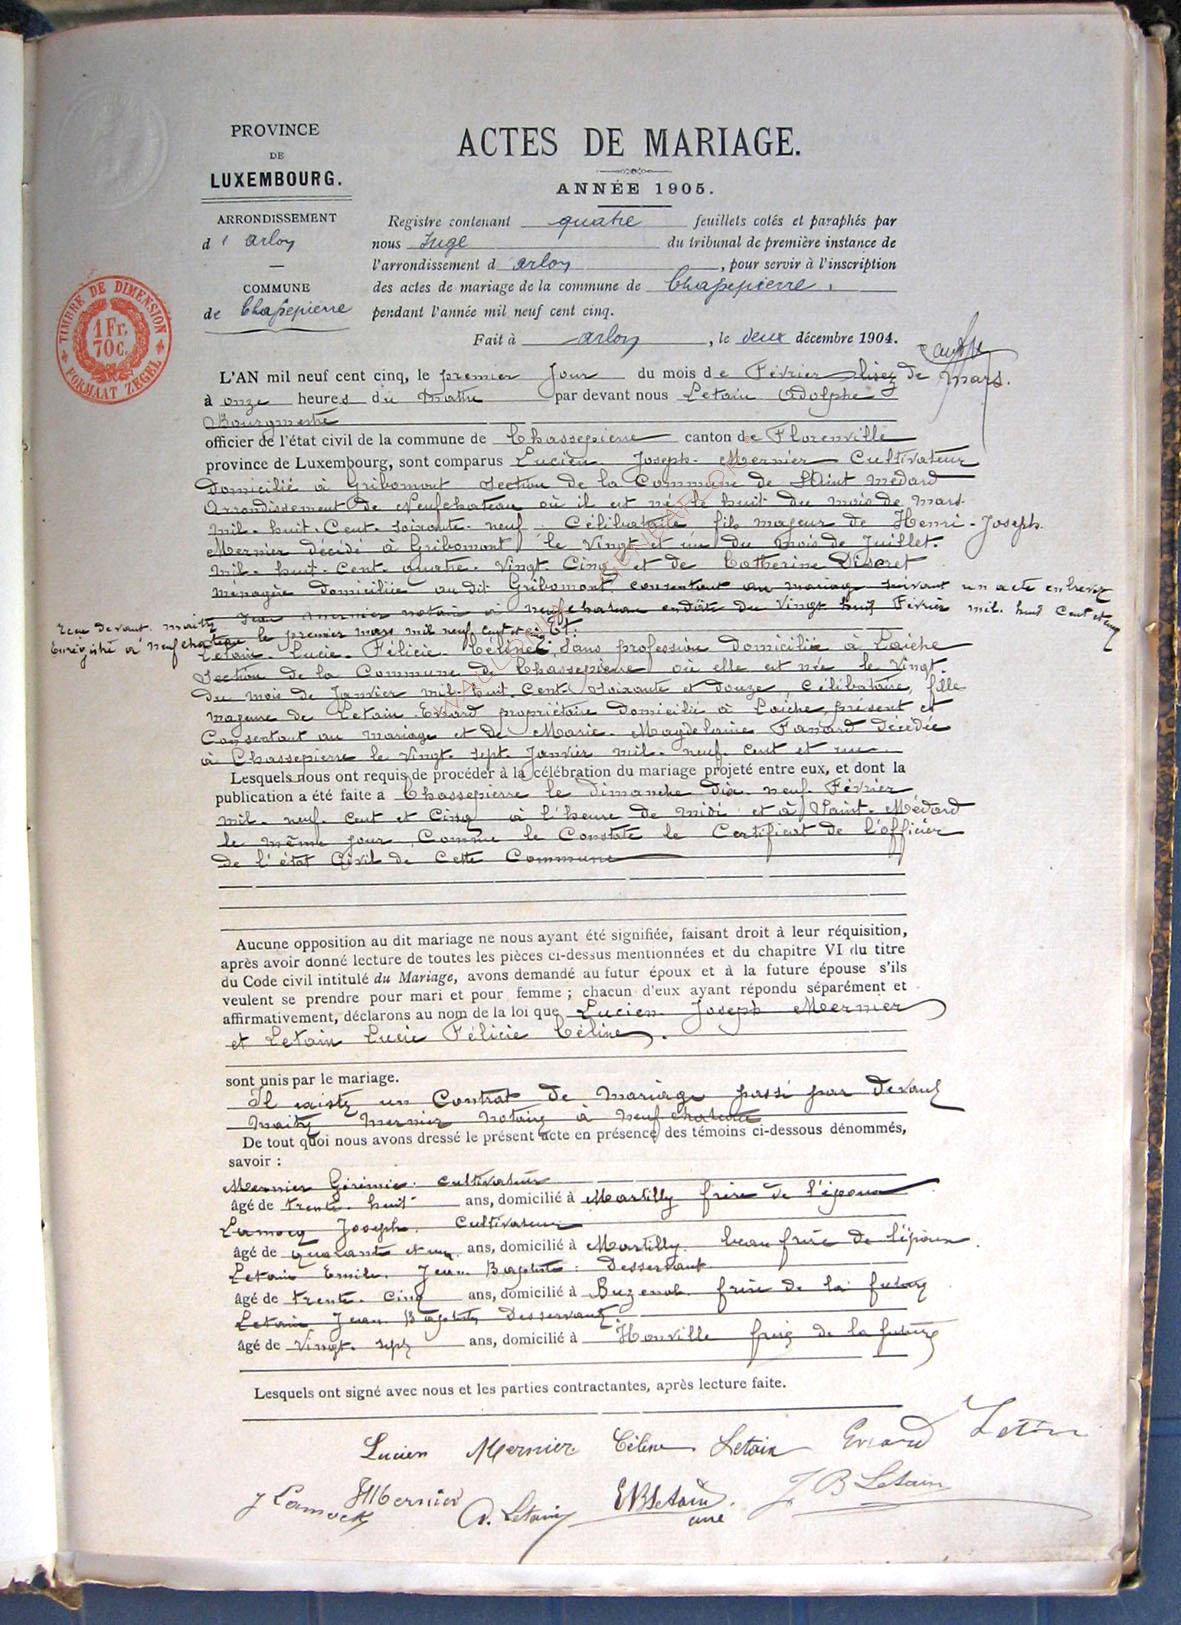 PROVINCE
DE
LUXEMBOURG.
ARRONDISSEMENT
d'Arlon
COMMUNE
de Chassepierre
TIMBRE DE DIMENSION
1 Fr.
70 c.
FORMAAT ZEGEL
ACTES DE MARIAGE.
ANNÉE 1905.
Registre contenant quatre feuillets cotés et paraphés par
nous Juge du tribunal de première instance de
l'arrondissement d'Arlon, pour servir à l'inscription
des actes de mariage de la commune de Chassepierre,
pendant l'année mil neuf cent cinq.
Fait à Arlon, le deux décembre 1904.
L'AN mil neuf cent cinq, le premier Jour du mois de Février lisez de mars.
à onze heures du matin par devant nous Letain Adolphe
Bourgmestre
officier de l'état civil de la commune de Chassepierre canton de Florenville
province de Luxembourg, sont comparus Lucien Joseph Mernier Cultivateur
Domicilié à Gribomont section de la Commune de Saint Médard
Arrondissement de Neufchateau où il est né le huit du mois de mars
mil huit Cent soixante neuf Célibataire fils majeur de Henri-Joseph
Mernier décédé à Gribomont le Vingt et un du mois de Juillet
mil huit Cent quatre Vingt Cinq et de Catherine Discret
menagère domiciliée au dit Gribomont consentant au mariage suivant un acte en brevet
recu devant maitre Mernier notaire à neufchateau en date du Vingt huit Février mil neuf Cent et cinq
Enregistré à neufchateau le premier mars mil neuf cent et cinq Et:
Letain Lucie Félicie Céline, sans profession domiciliée à Laiche
Section de la Commune de Chassepierre où elle est née le Vingt
du mois de Janvier mil huit Cent soixante et douze, Célibataire, fille
majeure de Letain Evrard propriétaire domicilié à Laiche présent et
Consentant au mariage et de Marie Magdelaine Fanard décédée
à Chassepierre le Vingt sept Janvier mil neuf cent et un
Lesquels nous ont requis de procéder à la célébration du mariage projeté entre eux, et dont la
publication a été faite a Chassepierre le dimanche dix neuf Février
mil neuf Cent et Cinq à l'heure de midi et à Saint Médard
le même jour, Comme le Constate le Certificat de l'officier
de l'état Civil de cette Commune
Aucune opposition au dit mariage ne nous ayant été signifiée, faisant droit à leur réquisition,
après avoir donné lecture de toutes les pièces ci-dessus mentionnées et du chapitre VI du titre
du Code civil intitulé du Mariage, avons demandé au futur époux et à la future épouse s'ils
veulent se prendre pour mari et pour femme ; chacun d'eux ayant répondu séparément et
affirmativement, déclarons au nom de la loi que Lucien Joseph Mernier
et Letain Lucie Félicie Céline.
sont unis par le mariage.
Il existe un Contrat de mariage passé par devant
maitre Mernier notaire à neufchateau
De tout quoi nous avons dressé le présent acte en présence des témoins ci-dessous dénommés,
savoir :
Mernier Gérémie cultivateur
âgé de trente huit ans, domicilié à Martilly frère de l'époux
Lamocq Joseph. Cultivateur
âgé de quarante et un ans, domicilié à Martilly beau frère de l'époux.
Letain Emile Jean Baptiste: desservant
âgé de trente cinq ans, domicilié à Buzenol frère de la future
Letain Jean Baptiste desservant
âgé de vingt sept ans, domicilié à Honville frère de la future
Lesquels ont signé avec nous et les parties contractantes, après lecture faite.
Lucien Mernier Céline Letain Evrard Letain
J Lamock Mernier A. Letain E JB Letain curé J B Letain